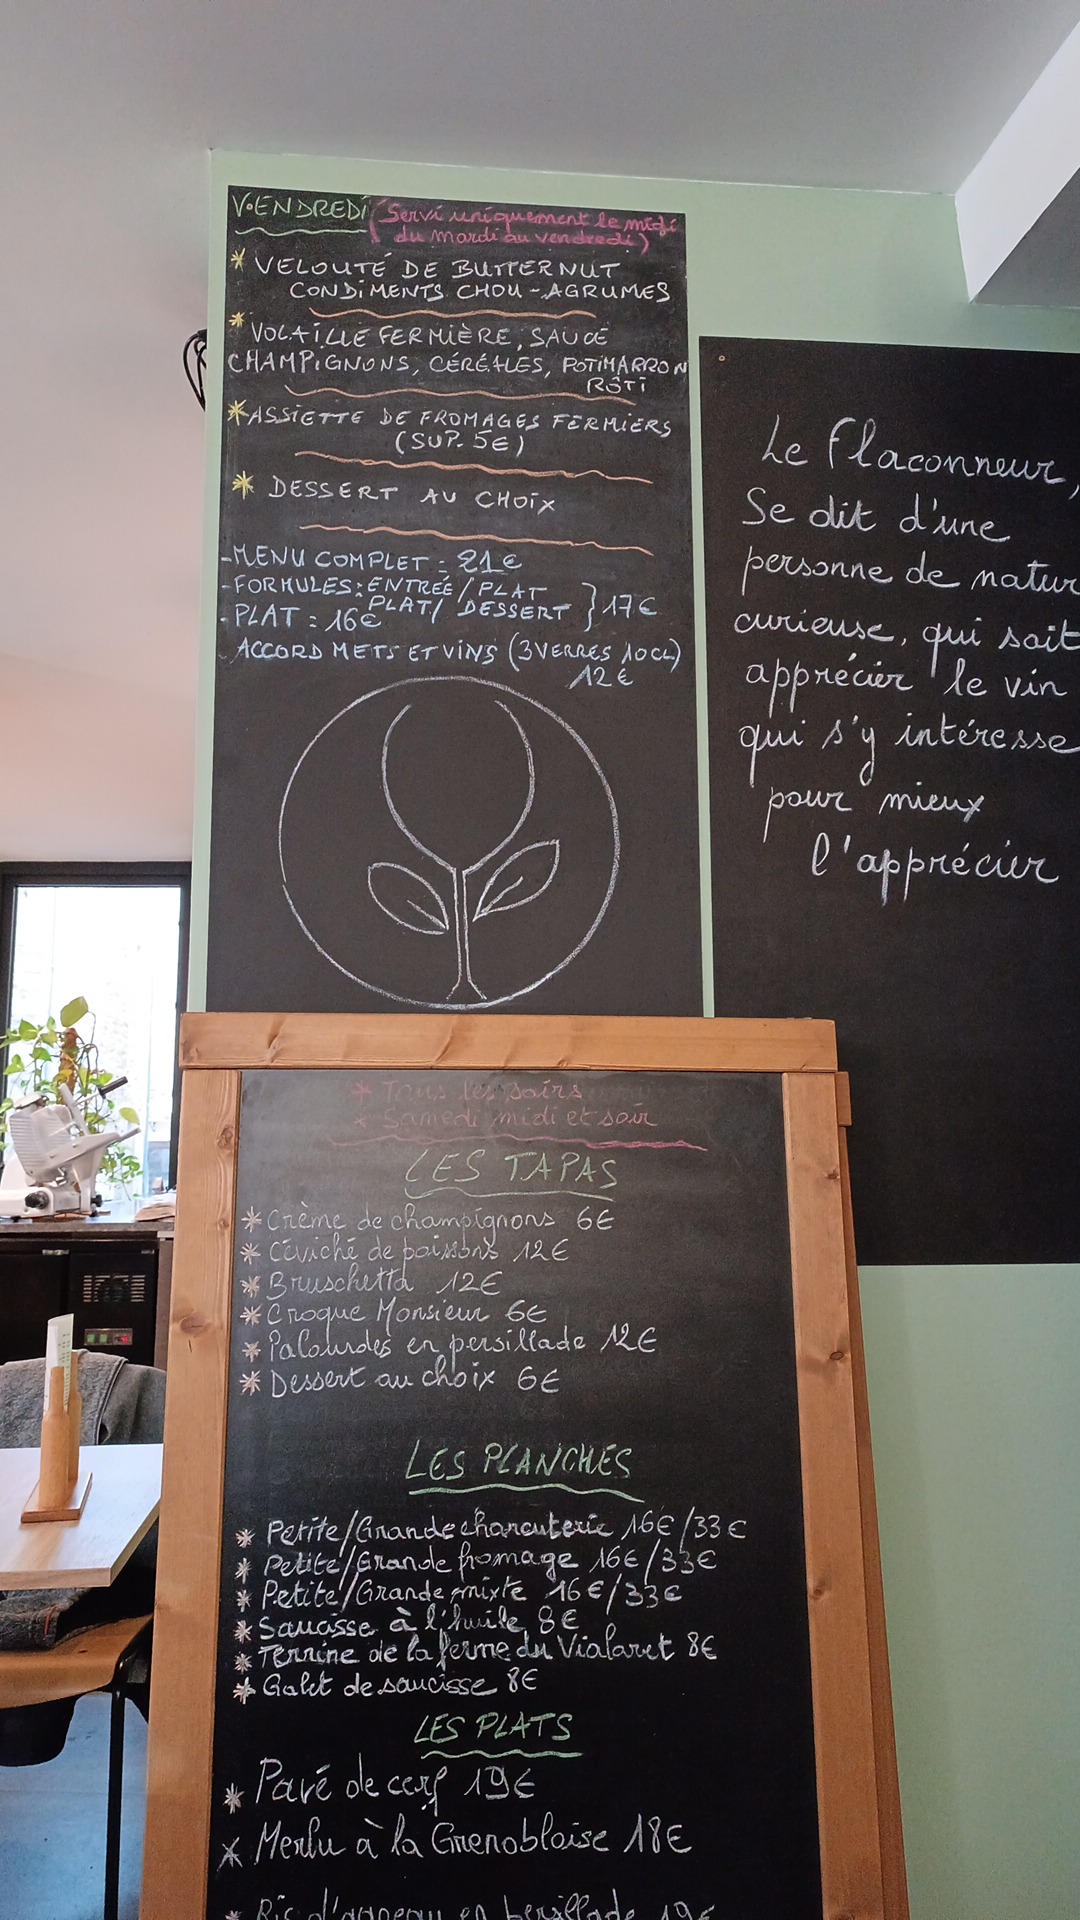 VENDREDI (Servi uniquement le midi
du mardi au vendredi)
* VELOUTÉ DE BUTTERNUT
CONDIMENTS CHOU-AGRUMES
* VOLAILLE FERMIÈRE, SAUCE
CHAMPIGNONS, CÉRÉALES, POTIMARRON
RÔTI
* ASSIETTE DE FROMAGES FERMIERS
(SUP. 5€)
* DESSERT AU CHOIX
- MENU COMPLET : 21€
- FORMULES : ENTRÉE / PLAT
PLAT / DESSERT } 17€
- PLAT : 16€
ACCORD METS ET VINS (3 VERRES 10CL)
12€
Le Flaconneur,
Se dit d'une
personne de natur
curieuse, qui sait
apprécier le vin
qui s'y intéresse
pour mieux
l'apprécier
* Tous les soirs
* Samedi midi et soir
LES TAPAS
* Crème de champignons 6€
* Céviché de poissons 12€
* Bruschetta 12€
* Croque Monsieur 6€
* Palourdes en persillade 12€
* Dessert au choix 6€
LES PLANCHES
* Petite/Grande charcuterie 16€/33€
* Petite/Grande fromage 16€/33€
* Petite/Grande mixte 16€/33€
* Saucisse à l'huile 8€
* Terrine de la ferme du Vialaret 8€
* Galet de saucisse 8€
LES PLATS
* Pavé de cerf 19€
* Merlu à la Grenobloise 18€
* Ris d'agneau en persillade 19€